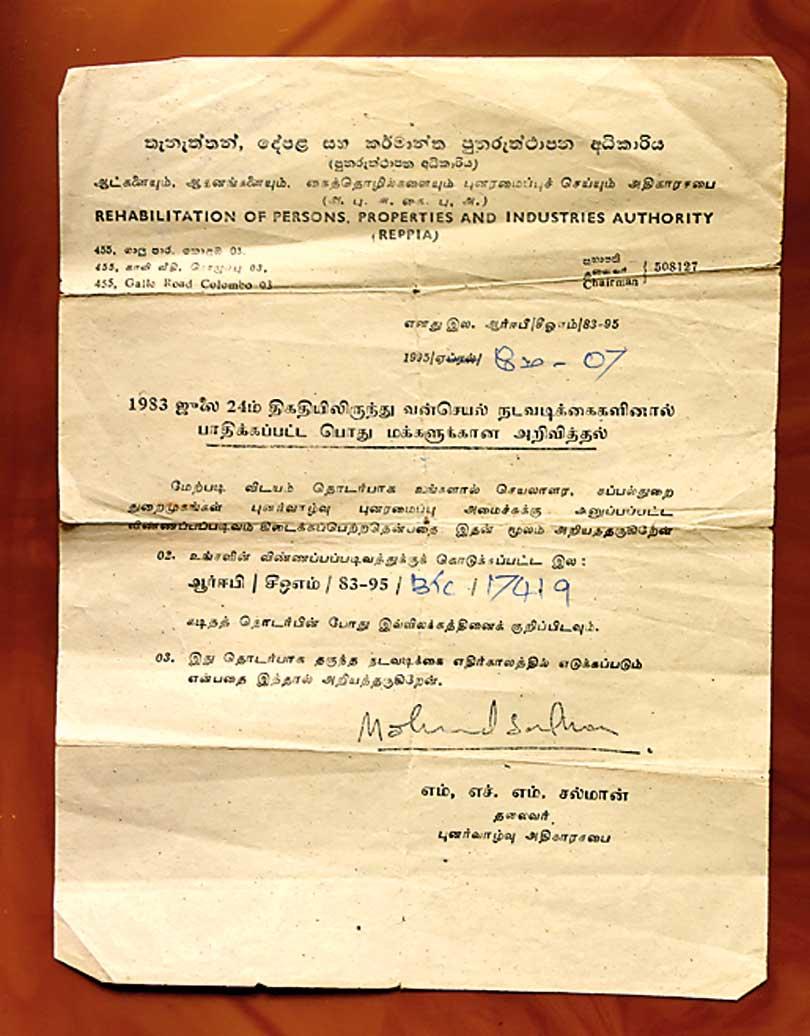 තැනැත්තන්, දේපළ සහ කර්මාන්ත පුනරුත්ථාපන අධිකාරිය
(පුනරුත්ථාපන අධිකාරිය)
ஆட்களையும், ஆதனங்களையும், கைத்தொழில்களையும் புனரமைப்புச் செய்யும் அதிகாரசபை
(ஆ. பு. ஆ. கை. பு. அ.)
REHABILITATION OF PERSONS, PROPERTIES AND INDUSTRIES AUTHORITY
(REPPIA)
455, ගාලු පාර, කොළඹ 03.
455, காலி வீதி, கொழும்பு 03.
455, Galle Road Colombo 03
සභාපති
தலைவர்
Chairman
508127
எனது இல. ஆர்ஈபி/சீஓஎம்/83-95
1995/ஏப்ரல்/ மே - 07
1983 ஜுலை 24ம் திகதியிலிருந்து வன்செயல் நடவடிக்கைகளினால்
பாதிக்கப்பட்ட பொது மக்களுக்கான அறிவித்தல்
மேற்படி விடயம் தொடர்பாக உங்களால் செயலாளர், கப்பல்துறை
துறைமுகங்கள் புனர்வாழ்வு புனரமைப்பு அமைச்சுக்கு அனுப்பப்பட்ட
விண்ணப்பப்படிவம் கிடைக்கப்பெற்றதென்பதை இதன் மூலம் அறியத்தருகிறேன்
02. உங்களின் விண்ணப்பப்படிவத்துக்குக் கொடுக்கப்பட்ட இல :
ஆர்ஈபி / சீஓஎம் / 83-95 / / 17419
கடிதத் தொடர்பின் போது இவ்விலக்கத்தினைக் குறிப்பிடவும்.
03. இது தொடர்பாக தகுந்த நடவடிக்கை எதிர்காலத்தில் எடுக்கப்படும்
என்பதை இத்தால் அறியத்தருகிறேன்.
எம், எச். எம். சல்மான்
தலைவர்
புனர்வாழ்வு அதிகாரசபை